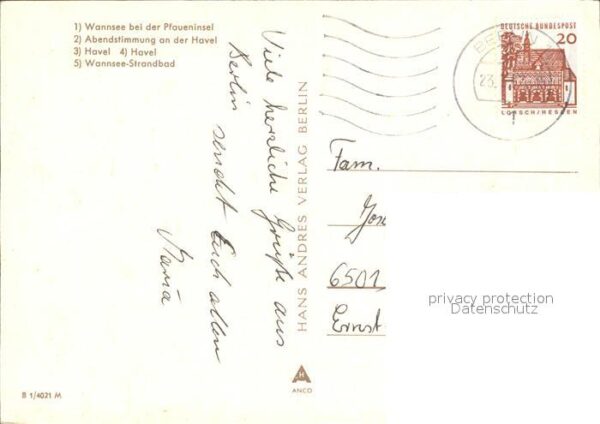 1) Wannsee bei der Pfaueninsel
2) Abendstimmung an der Havel
3) Havel 4) Havel
5) Wannsee-Strandbad
Viele herzliche Grüße aus
Berlin sendet Euch allen
Maria
HANS ANDRES VERLAG BERLIN
DEUTSCHE BUNDESPOST
20
LORSCH/HESSEN
BERLIN
23.
Fam.
Jos
6501
Ernst
privacy protection
Datenschutz
H
ANCO
B 1/4021 M